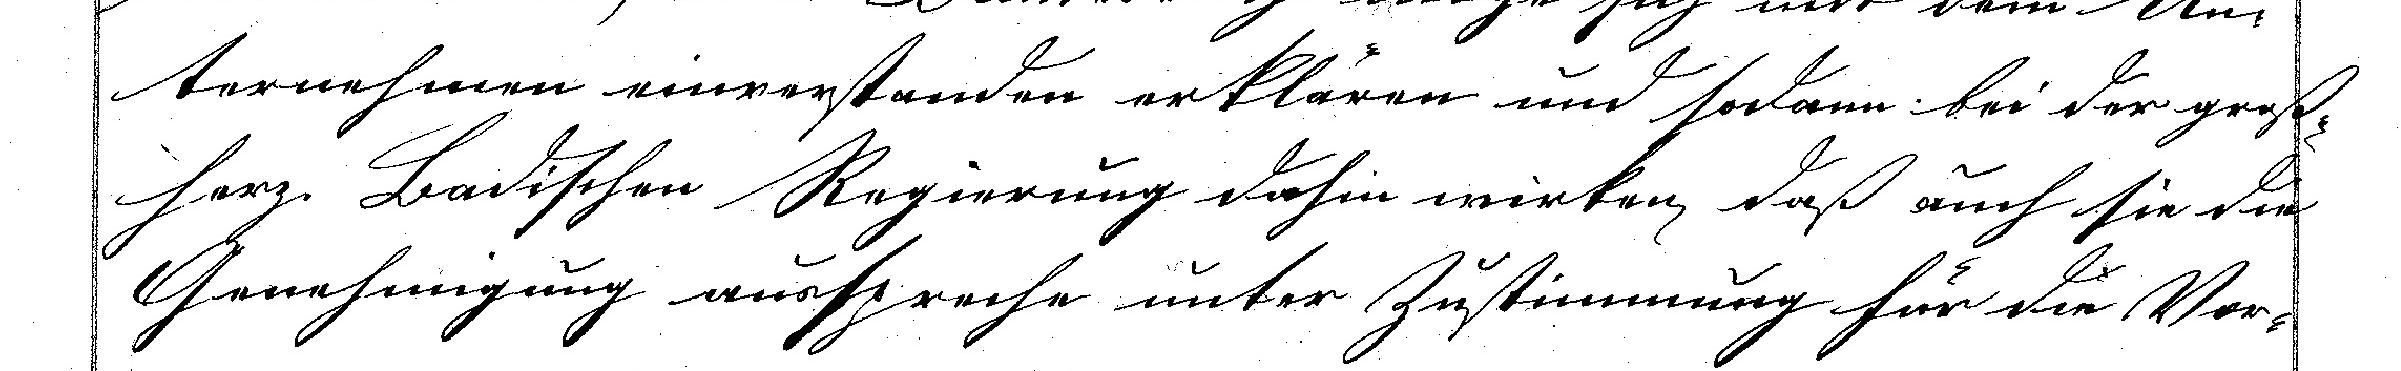 sich mit dem Un-
ternehmen einverstanden erklären und sodann bei der groß-
herz. Badischen Regierung dahin wirken, daß auch sie die
Genehmigung ausspreche unter Zustimmung für die Vor-